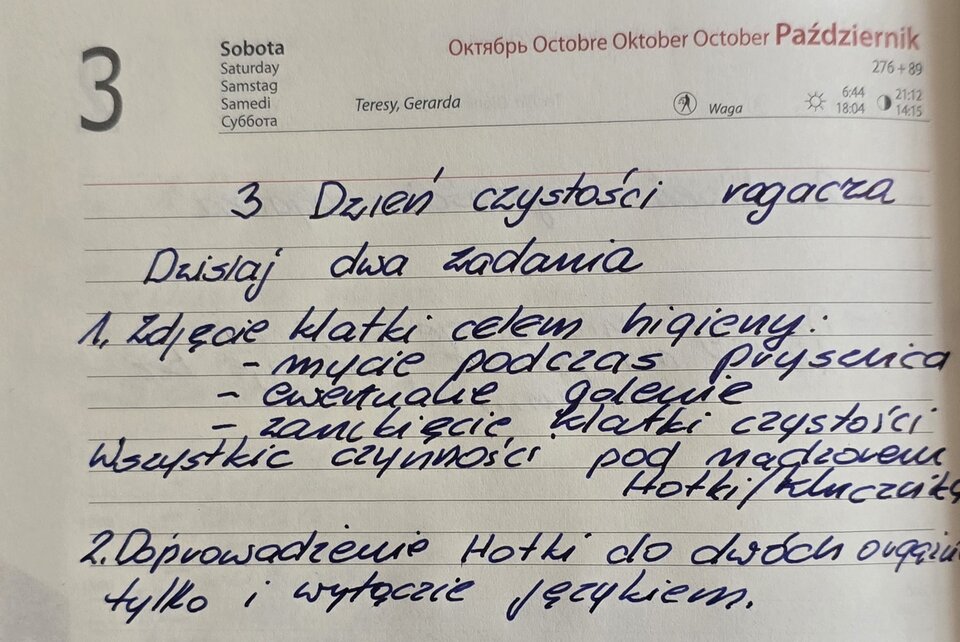 3
Sobota
Saturday
Samstag
Samedi
Суббота
Teresy, Gerarda
Октябрь Octobre Oktober October Październik
276 + 89
Waga
6:44
18:04
21:12
14:15
3 Dzień czystości rogacza
Dzisiaj dwa zadania
1. Zdjęcie klatki celem higieny:
- mycie podczas prysznica
- ewentualne golenie
- zamknięcie klatki czystości
Wszystkie czynności pod nadzorem
Hotki/klucznika
2. Doprowadzenie Hotki do dwóch
tylko i wyłączie językiem.